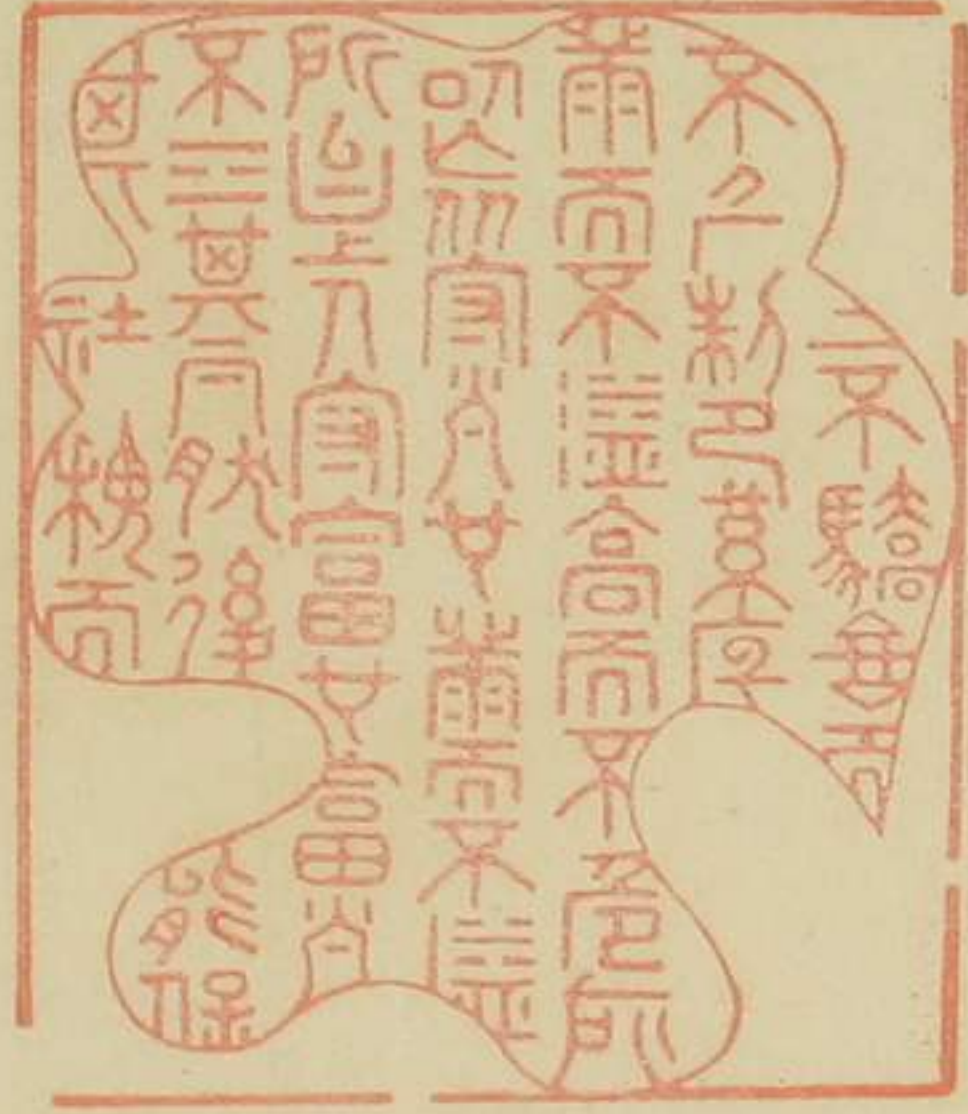 上不驕高而
不危制節謹度
滿而不溢高而不危所
以長守貴也滿而不溢
所以長守富也富貴
不離其身然後能保
其社稷而